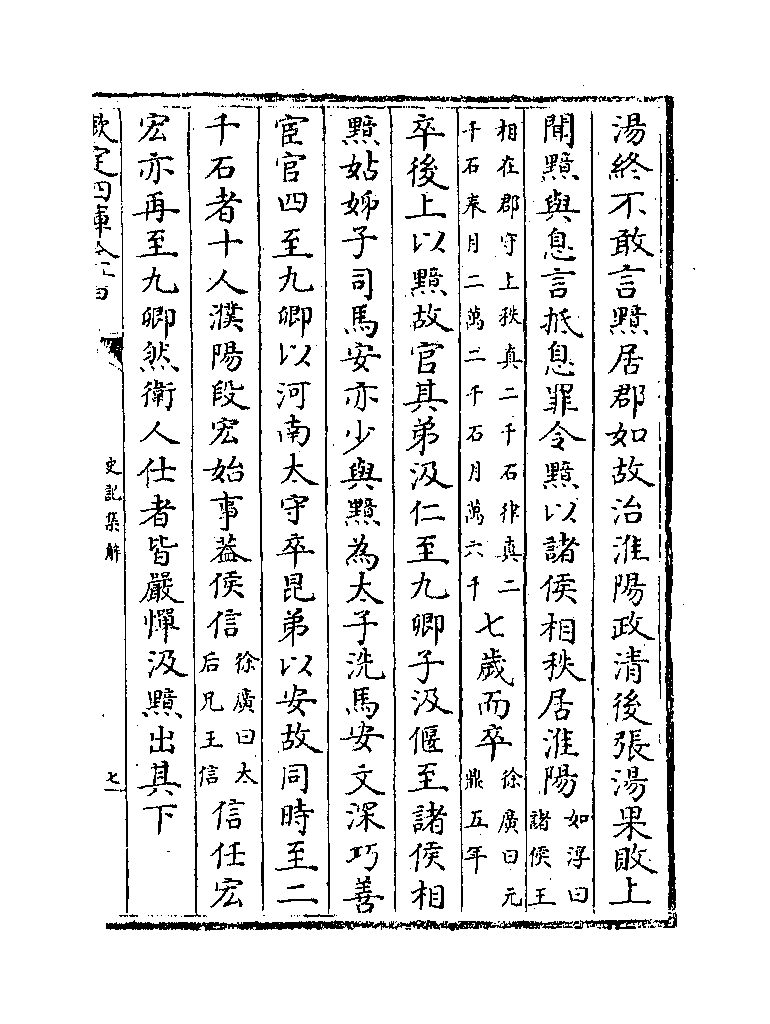 湯終不敢言黯居郡如故治淮陽政清後張湯果敗上
聞黯與息言抵息罪令黯以諸侯相秩居淮陽如淳曰諸侯王
相在郡守上秩真二千石律真二千石奉月二萬二千石月萬六千七歲而卒徐廣曰元鼎五年
卒後上以黯故官其弟汲仁至九卿子汲偃至諸侯相
黯姑姊子司馬安亦少與黯為太子洗馬安文深巧善
宦官四至九卿以河南太守卒昆弟以安故同時至二
千石者十人濮陽段宏始事葢侯信徐廣曰太后兄王信信任宏
宏亦再至九卿然衛人仕者皆嚴憚汲黯出其下
欽定四庫全書
史記集解
七